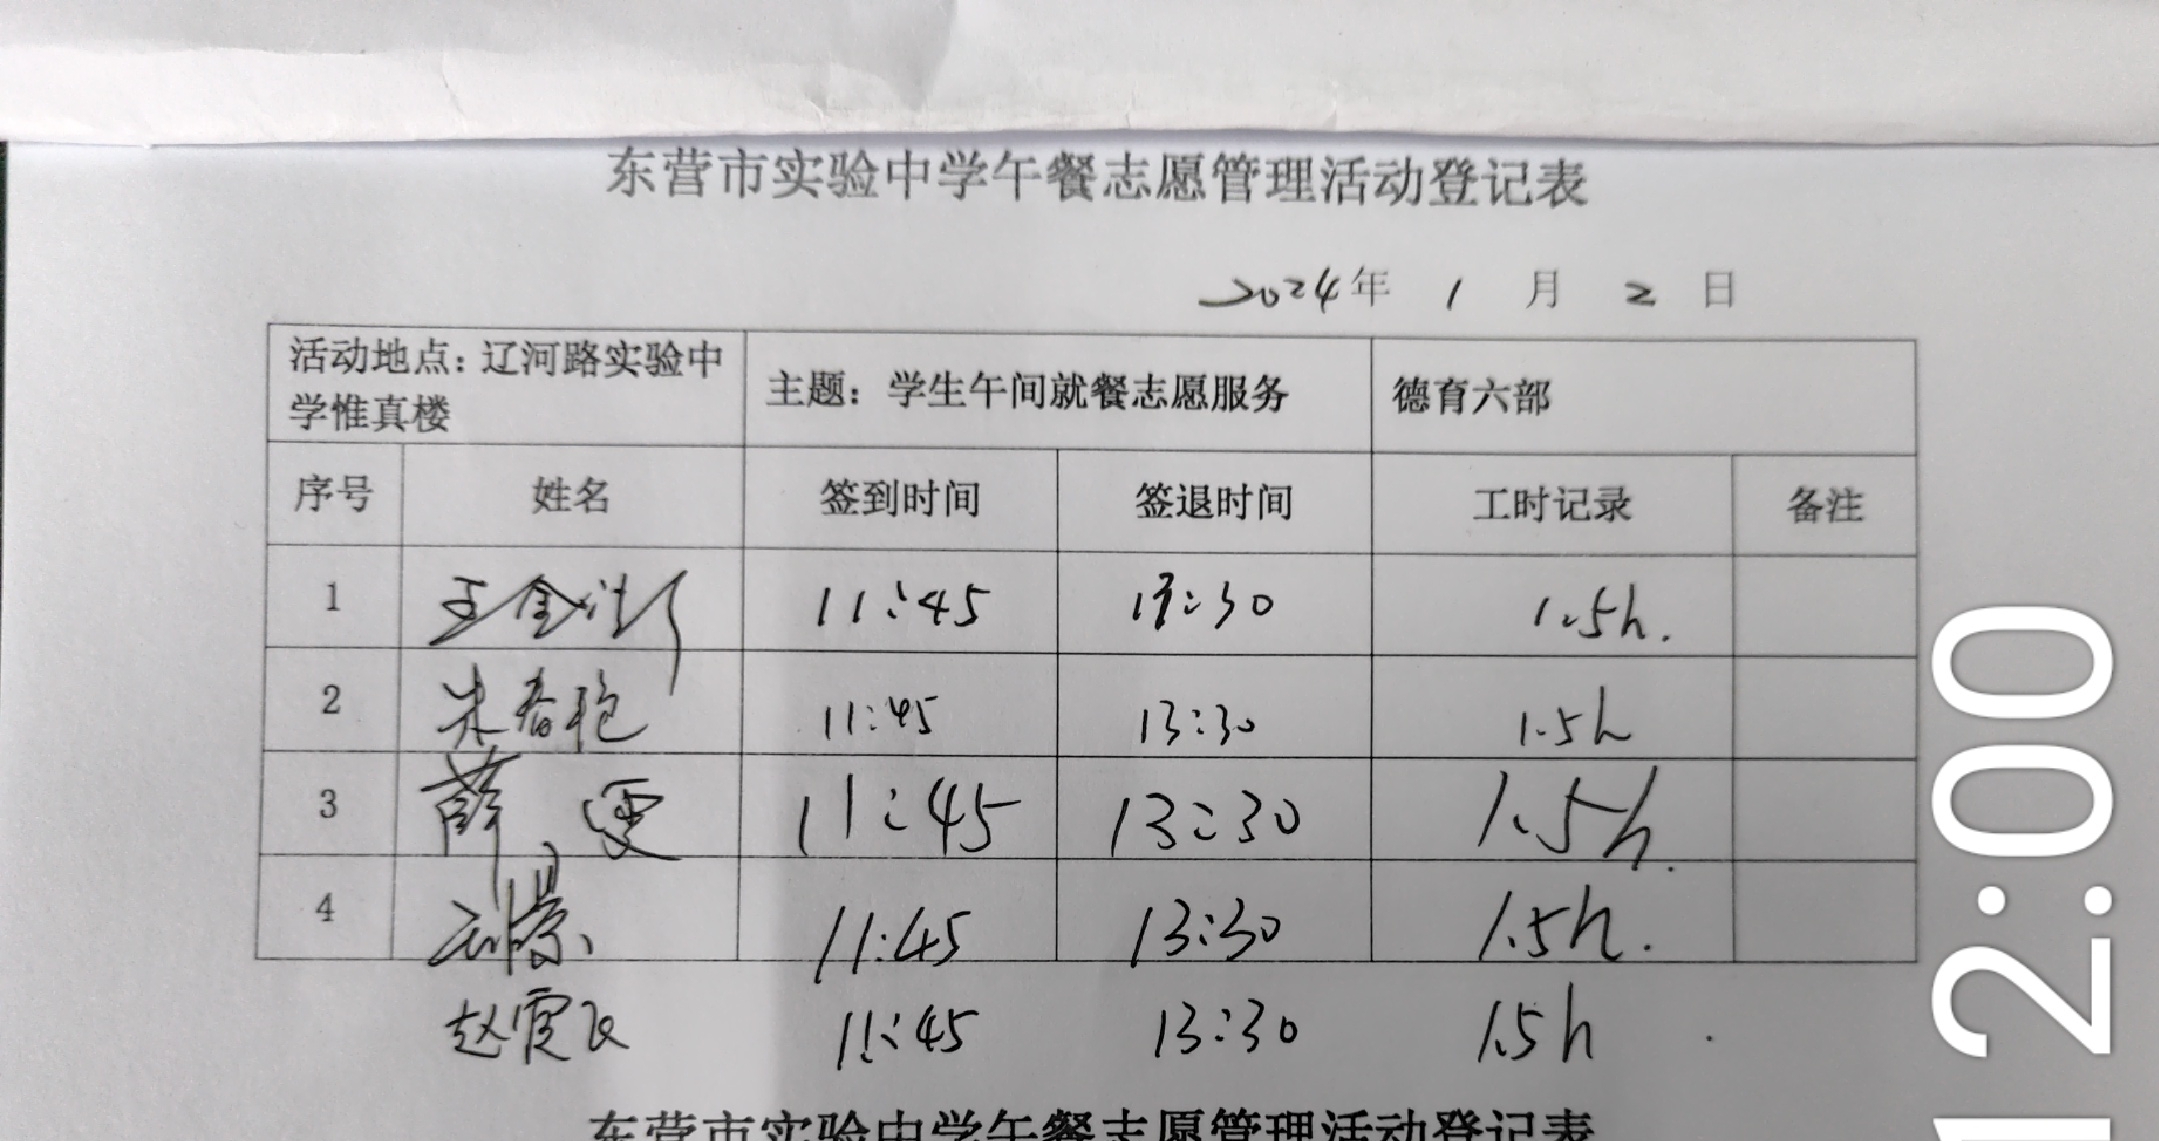 东营市实验中学午餐志愿管理活动登记表
2024年 1 月 2 日
活动地点：辽河路实验中
学惟真楼
主题：学生午间就餐志愿服务
德育六部
序号 姓名 签到时间 签退时间 工时记录 备注
1 王金 11:45 13:30 1.5h.
2 朱春艳 11:45 13:30 1.5h
3 薛雯 11:45 13:30 1.5h.
4 刘景 11:45 13:30 1.5h.
赵霞飞 11:45 13:30 1.5h
东营市实验中学午餐志愿管理活动登记表
12:00